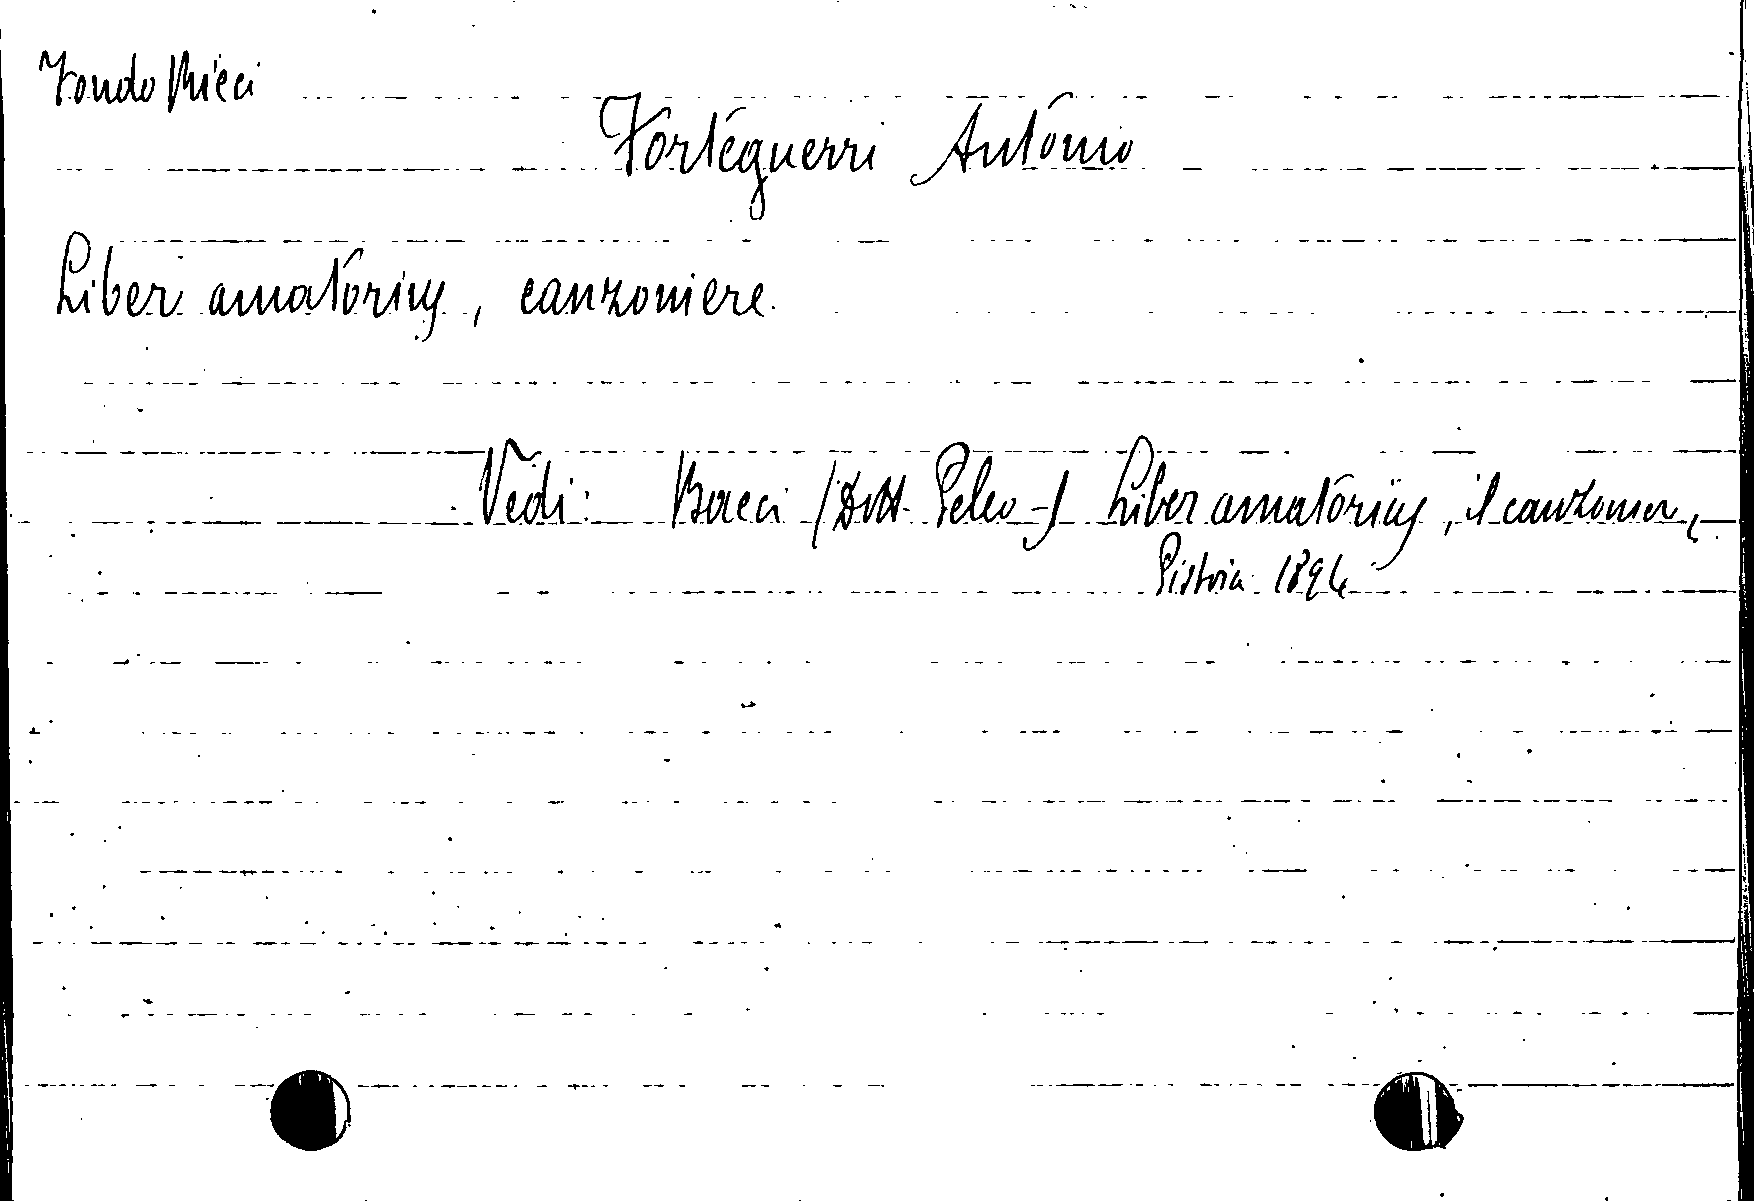 Fondo Ricci
Forteguerri Antonio
Liber amatorius, canzoniere.
Vedi: Bacci (Dott. Peleo-) Liber amatorius, il canzonier,
Pistoia 1894